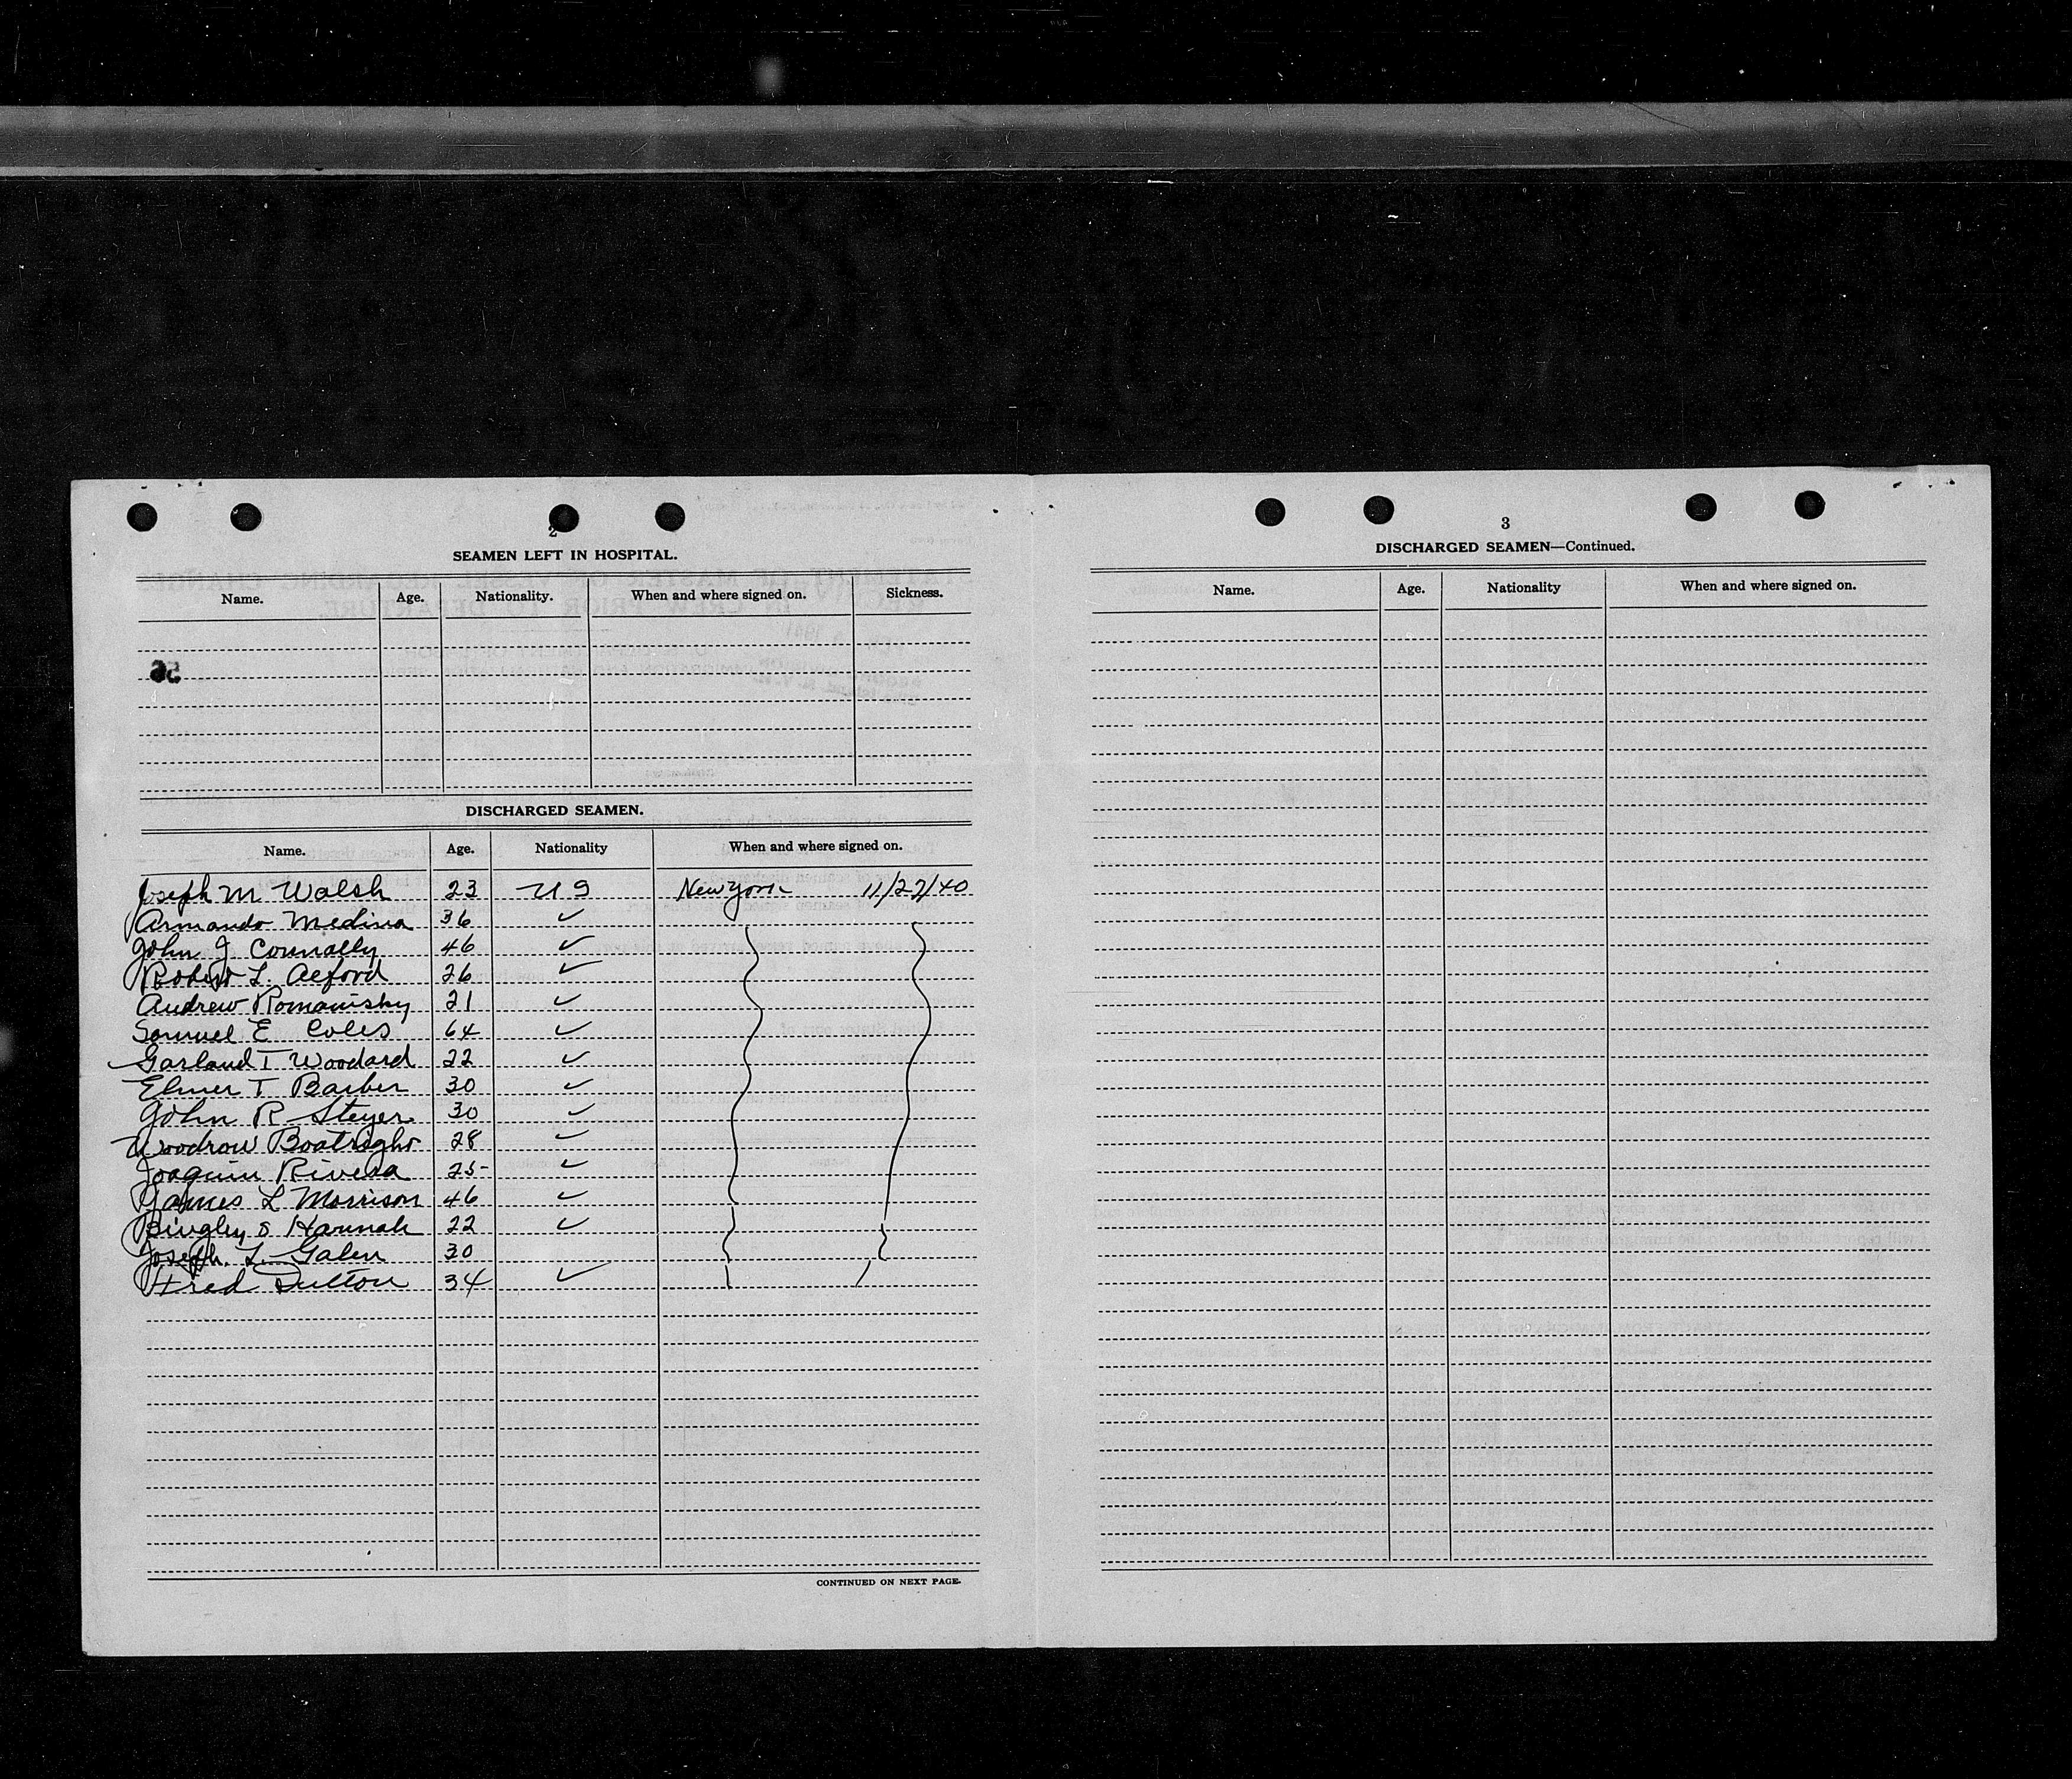 2
SEAMEN LEFT IN HOSPITAL.
Name. Age. Nationality. When and where signed on. Sickness.
DISCHARGED SEAMEN.
Name. Age. Nationality When and where signed on.
Joseph M Walsh 23 US New York 11/27/40
Armando Medina 36 ✓
John J Connally 46 ✓
Robert L. Alford 26 ✓
Andrew Romanisky 21 ✓
Samuel E Coles 64 ✓
Garland T Woodard 22 ✓
Elmer T Barber 30 ✓
John R Steyer 30 ✓
Woodrow Boatright 28 ✓
Joaquin Rivera 25 ✓
James L Morrison 46 ✓
Bingley S Hannah 22 ✓
Joseph L. Galen 30
Fred Dutton 34 ✓
CONTINUED ON NEXT PAGE.
3
DISCHARGED SEAMEN—Continued.
Name. Age. Nationality When and where signed on.